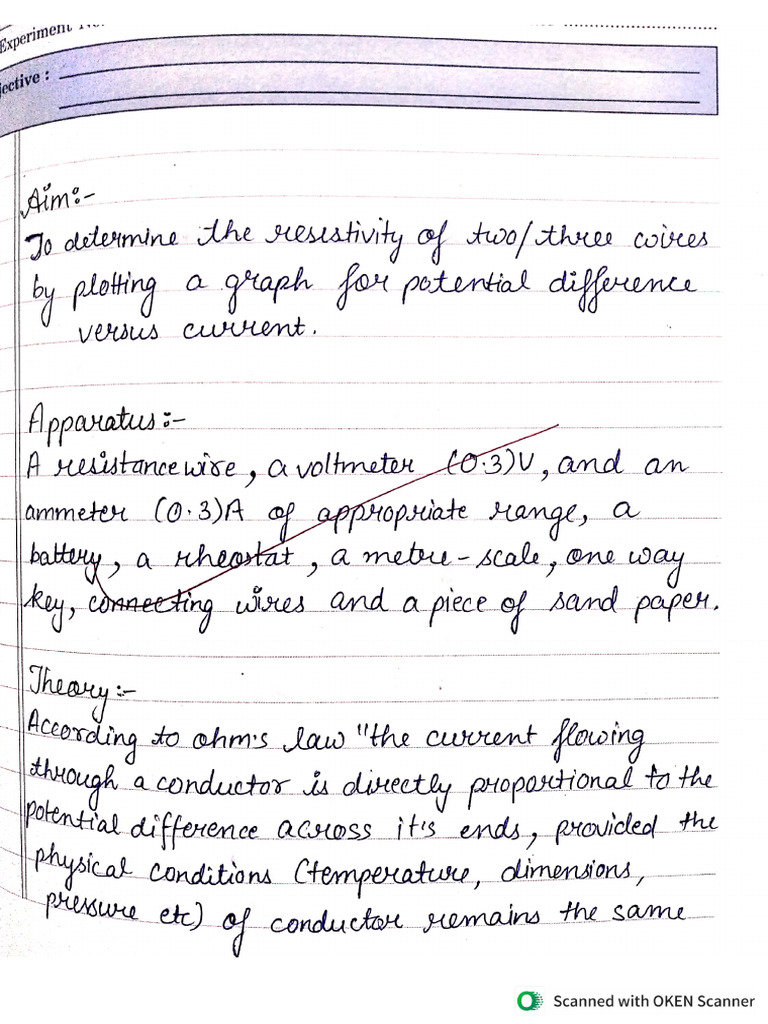 Experiment No.
jective :
Aim:-
To determine the resistivity of two/three wires
by plotting a graph for potential difference
versus current.
Apparatus:-
A resistance wire, a voltmeter (0.3)V, and an
ammeter (0.3)A of appropriate range, a
battery, a rheostat, a metre-scale, one way
key, connecting wires and a piece of sand paper.
Theory:-
According to ohm's law "the current flowing
through a conductor is directly proportional to the
potential difference across it's ends, provided the
physical conditions (temperature, dimensions,
pressure etc) of conductor remains the same
Scanned with OKEN Scanner